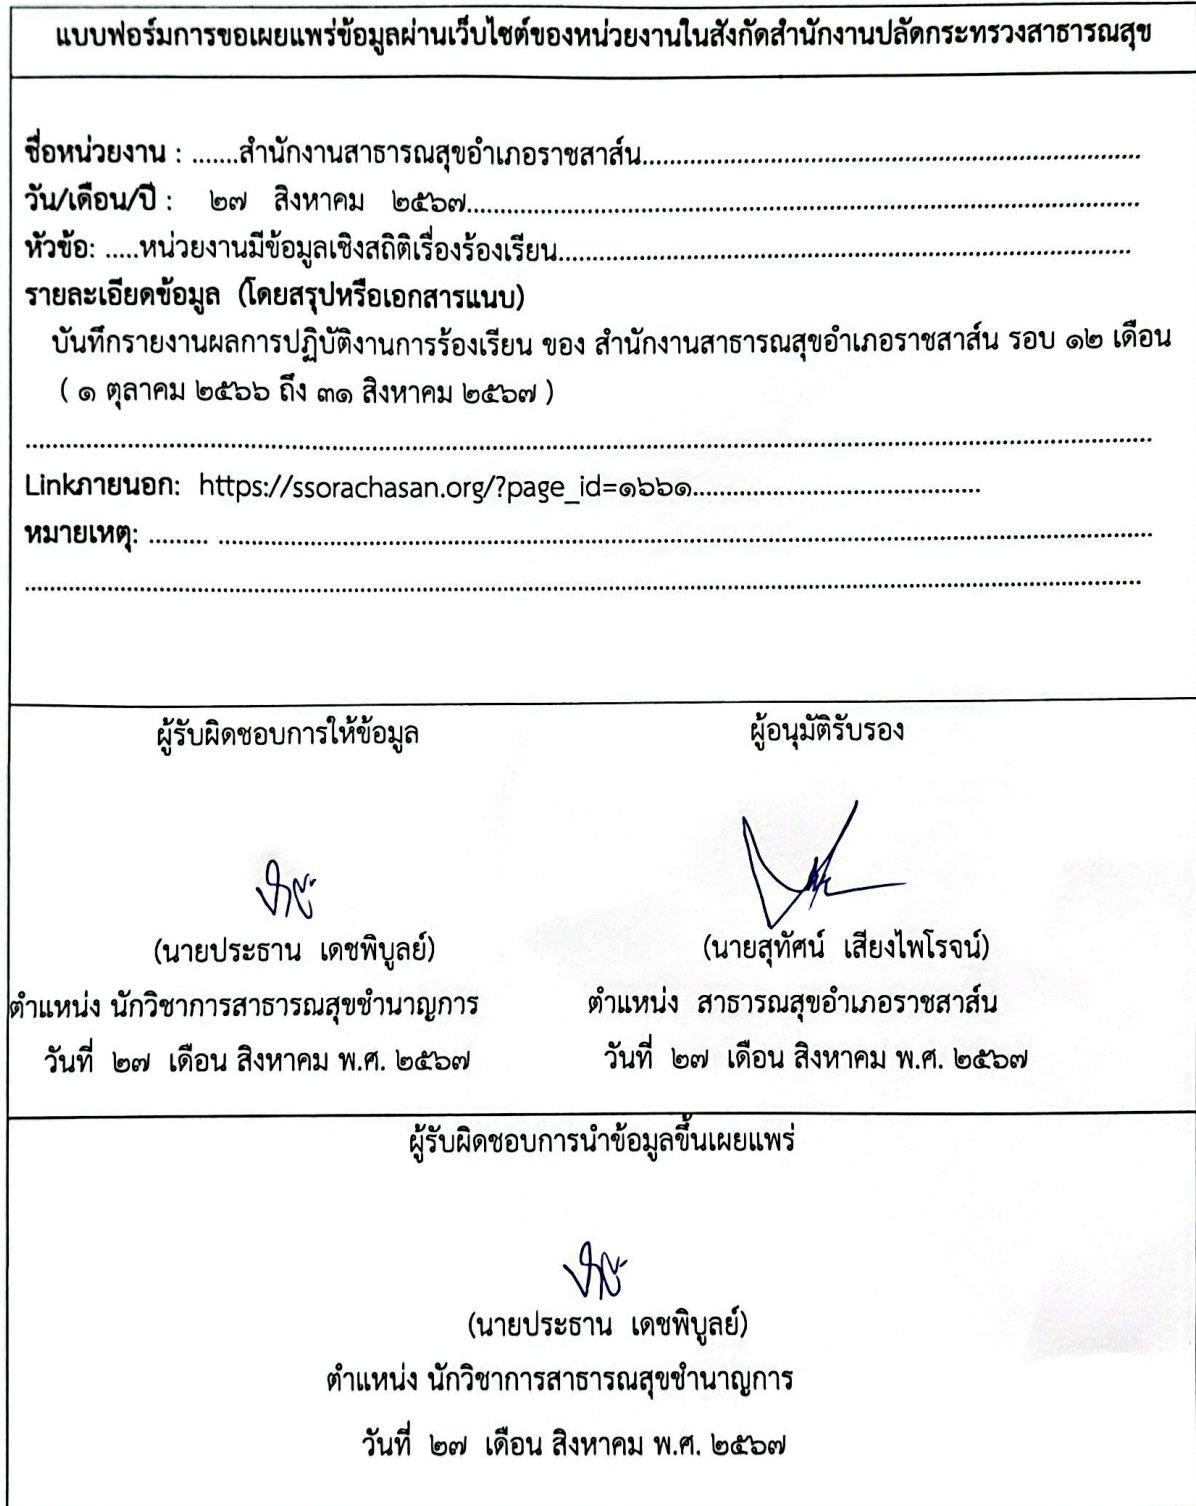 แบบฟอร์มการขอเผยแพร่ข้อมูลผ่านเว็บไซต์ของหน่วยงานในสังกัดสำนักงานปลัดกระทรวงสาธารณสุข
ชื่อหน่วยงาน : .......สำนักงานสาธารณสุขอำเภอราชสาส์น..........................................................................
วัน/เดือน/ปี : ๒๗ สิงหาคม ๒๕๖๗....................................................................................................
หัวข้อ: .....หน่วยงานมีข้อมูลเชิงสถิติเรื่องร้องเรียน.....................................................................................
รายละเอียดข้อมูล (โดยสรุปหรือเอกสารแนบ)
บันทึกรายงานผลการปฏิบัติงานการร้องเรียน ของ สำนักงานสาธารณสุขอำเภอราชสาส์น รอบ ๑๒ เดือน
( ๑ ตุลาคม ๒๕๖๖ ถึง ๓๑ สิงหาคม ๒๕๖๗ )
Linkภายนอก: https://ssorachasan.org/?page_id=๑๖๖๑...........................................
หมายเหตุ: ......... ...........................................................................................................................................
ผู้รับผิดชอบการให้ข้อมูล ผู้อนุมัติรับรอง
(นายประธาน เดชพิบูลย์) (นายสุทัศน์ เสียงไพโรจน์)
ตำแหน่ง นักวิชาการสาธารณสุขชำนาญการ ตำแหน่ง สาธารณสุขอำเภอราชสาส์น
วันที่ ๒๗ เดือน สิงหาคม พ.ศ. ๒๕๖๗ วันที่ ๒๗ เดือน สิงหาคม พ.ศ. ๒๕๖๗
ผู้รับผิดชอบการนำข้อมูลขึ้นเผยแพร่
(นายประธาน เดชพิบูลย์)
ตำแหน่ง นักวิชาการสาธารณสุขชำนาญการ
วันที่ ๒๗ เดือน สิงหาคม พ.ศ. ๒๕๖๗